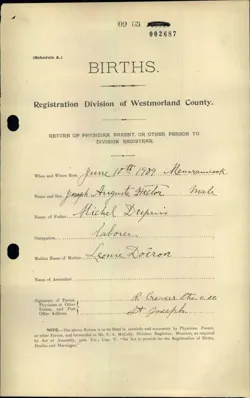 09 05
002687
(Schedule A.)
BIRTHS.
Registration Division of Westmorland County.
RETURN OF PHYSICIAN, PARENT, OR OTHER PERSON TO
DIVISION REGISTRAR
When and Where Born, June 10th 1909 Memramcook
Name and Sex, Joseph Auguste Hector Male
Name of Father, Michel Dupuis
Occupation, laborer
Maiden Name of Mother, Leonie Doiron
Name of Ancestor
Signature of Parent,
Physician or Other
Person, and Post
Office Address,
St Joseph
NOTE.—The above Return is to be filled in carefully and accurately by Physician, Parent,
or other Person, and forwarded to Mr. F. A. McCully, Division Registrar, Moncton, as required
by Act of Assembly, "An Act to provide for the Registration of Births,
Deaths and Marriages."